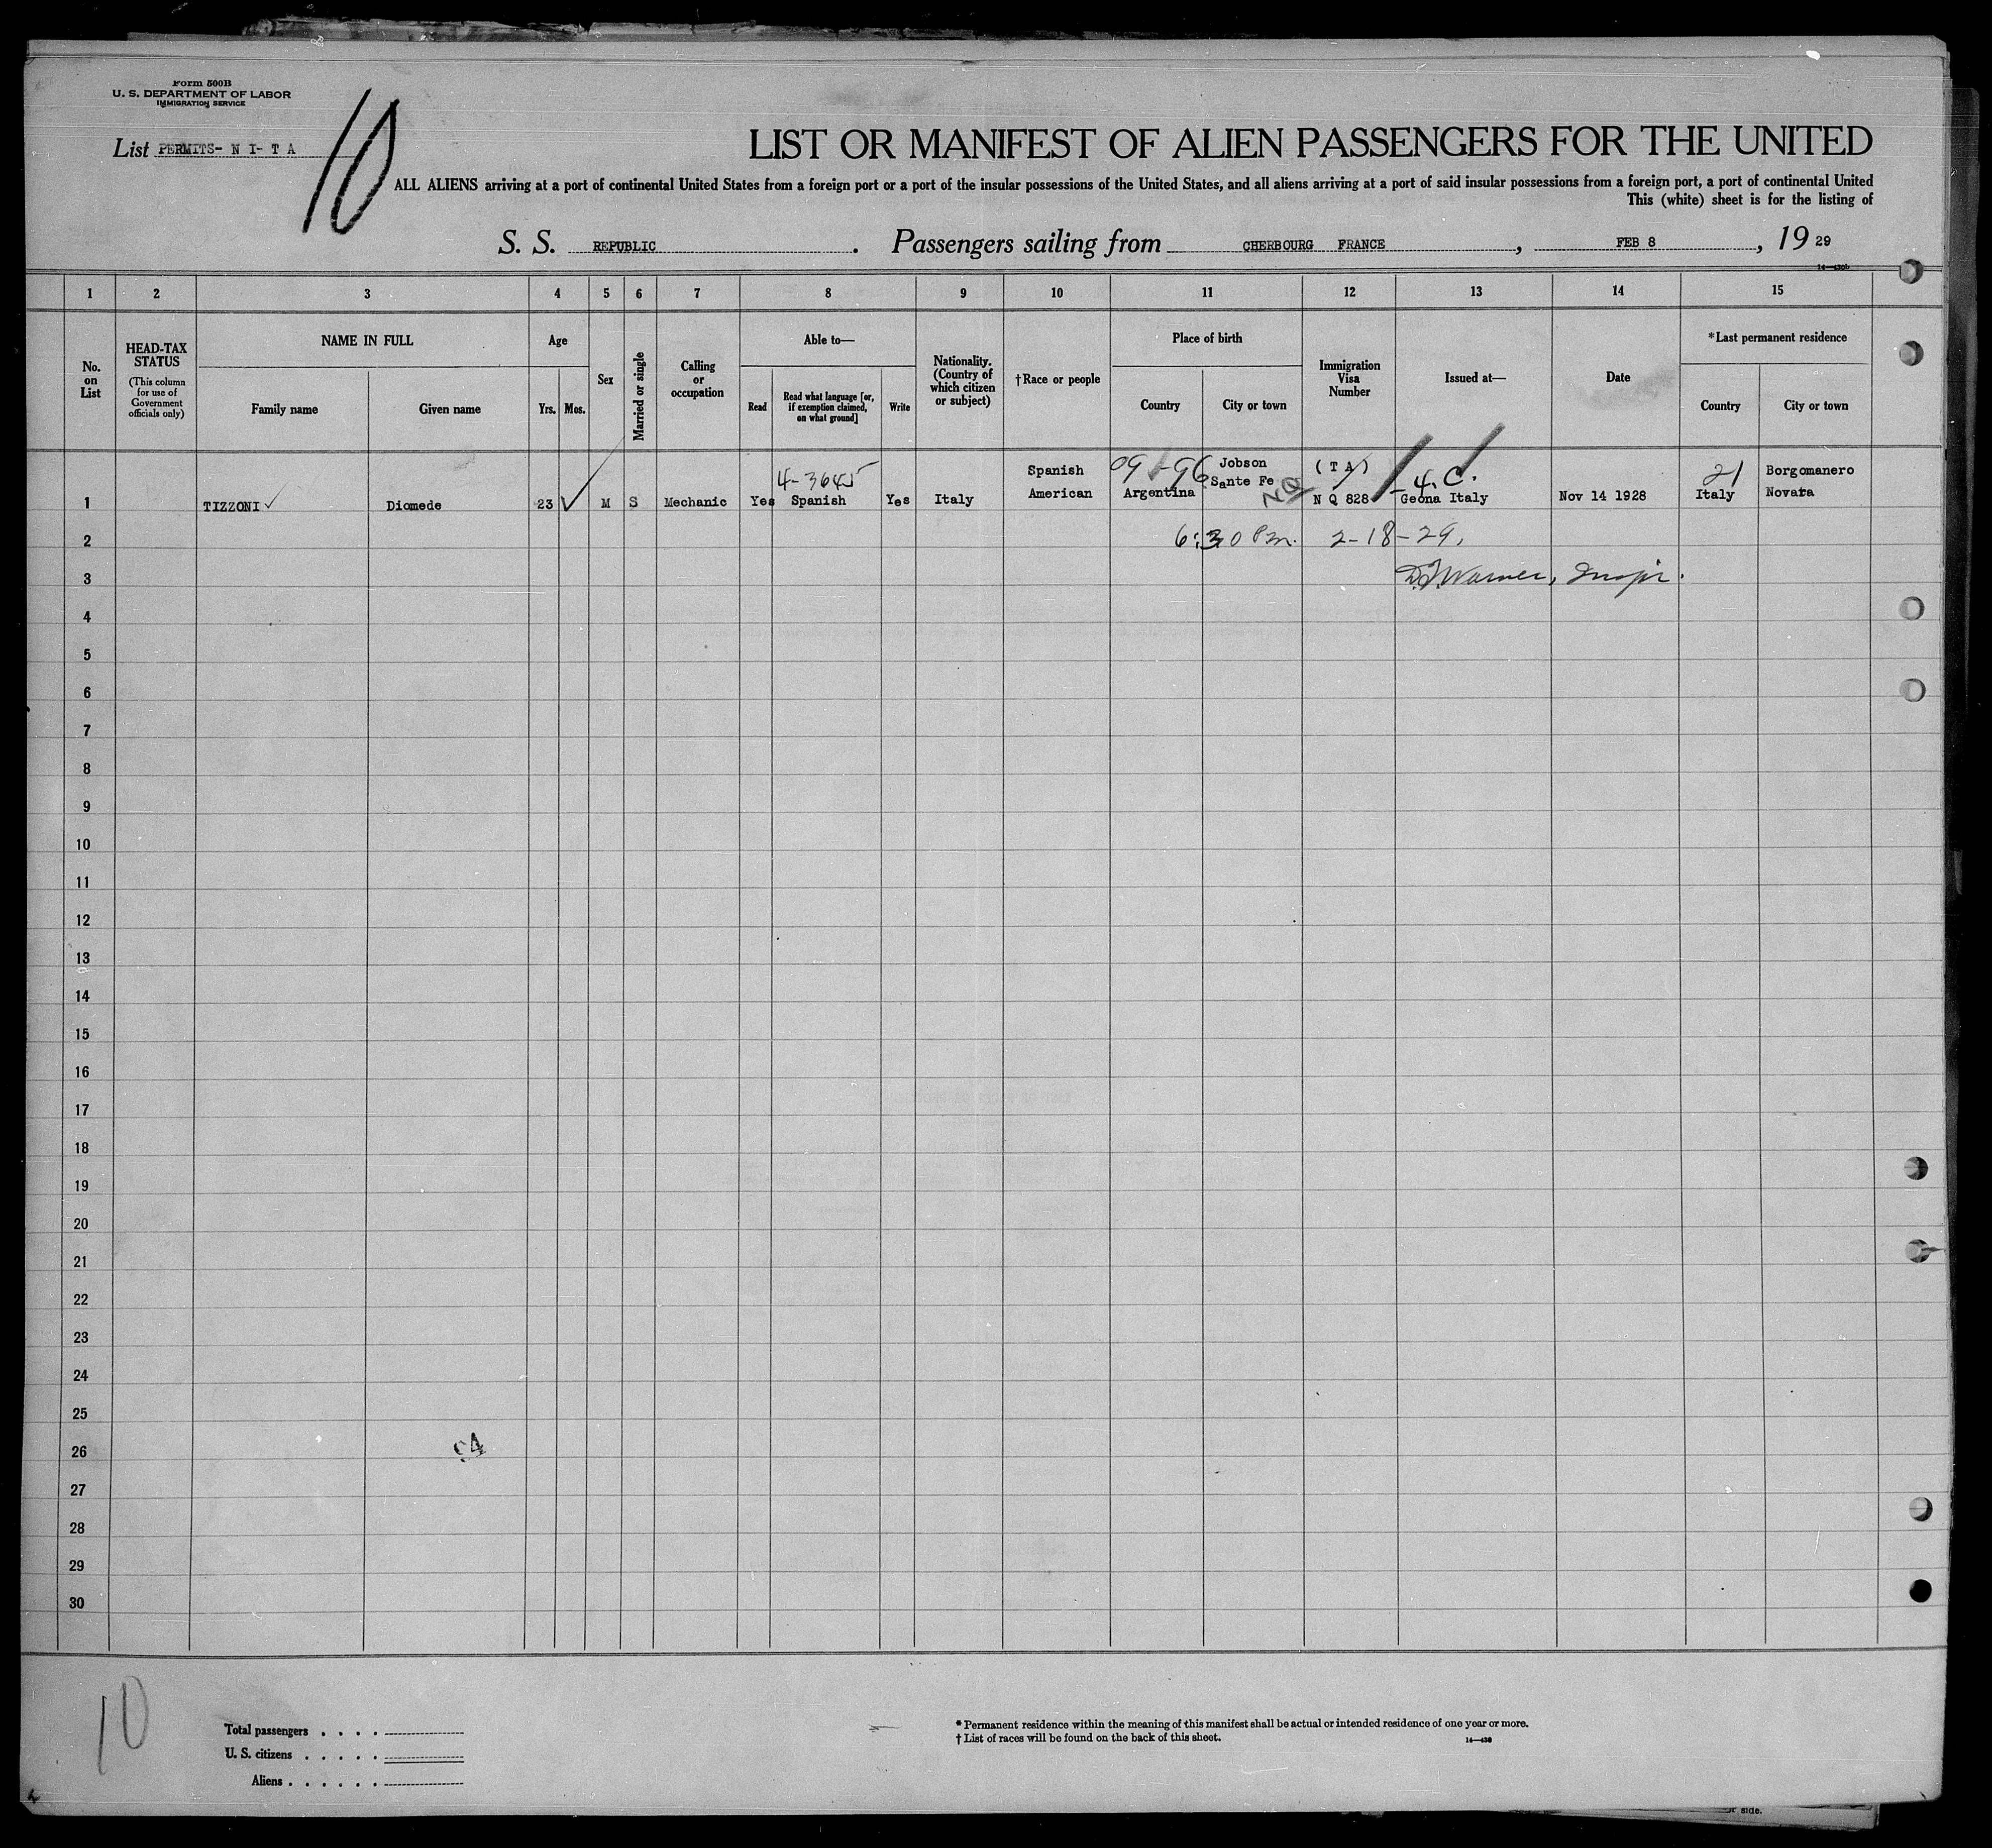 Form 500B
U. S. DEPARTMENT OF LABOR
IMMIGRATION SERVICE
List PERMITS- N I- T A
10
LIST OR MANIFEST OF ALIEN PASSENGERS FOR THE UNITED
ALL ALIENS arriving at a port of continental United States from a foreign port or a port of the insular possessions of the United States, and all aliens arriving at a port of said insular possessions from a foreign port, a port of continental United
This (white) sheet is for the listing of
S. S. REPUBLIC. Passengers sailing from CHERBOURG FRANCE, FEB 8, 19 29
14—430b
1 2 3 4 5 6 7 8 9 10 11 12 13 14 15
No. on List
HEAD-TAX STATUS
(This column for use of Government officials only)
NAME IN FULL
Family name Given name
Age
Yrs. Mos.
Sex
Married or single
Calling or occupation
Able to—
Read
Read what language [or, if exemption claimed, on what ground]
Write
Nationality. (Country of which citizen or subject)
†Race or people
Place of birth
Country City or town
Immigration Visa Number
Issued at—
Date
*Last permanent residence
Country City or town
4-3645 Spanish 09 -96 Jobson (T A) 4.C. 21 Borgomanero
1 TIZZONI ✓ Diomede 23 ✓ M S Mechanic Yes Spanish Yes Italy American Argentina Sante Fe NQ N Q 828 Geona Italy Nov 14 1928 Italy Novara
2 6:30 Pm. 2-18-29,
3 D.J. Warner, Inspr.
4
5
6
7
8
9
10
11
12
13
14
15
16
17
18
19
20
21
22
23
24
25
26 94
27
28
29
30
10
Total passengers . . . .
U. S. citizens . . . . .
Aliens . . . . . .
* Permanent residence within the meaning of this manifest shall be actual or intended residence of one year or more.
† List of races will be found on the back of this sheet.
14—430
side.